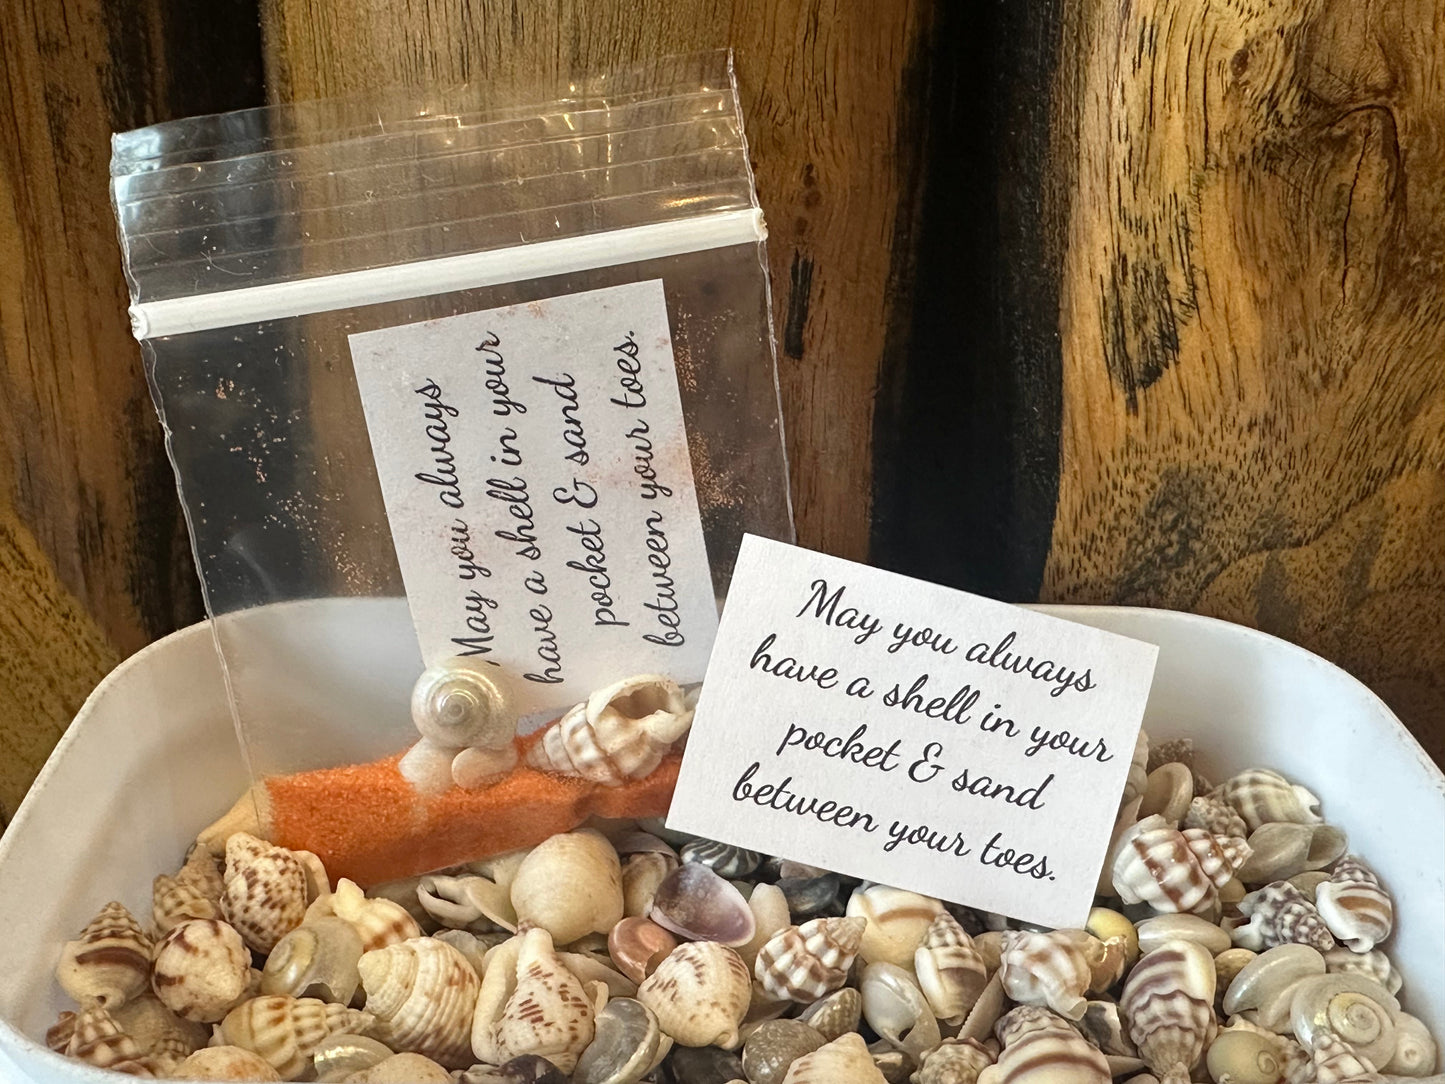 May you always
have a shell in your
pocket & sand
between your toes.
May you always
have a shell in your
pocket & sand
between your toes.